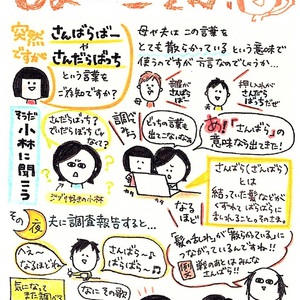 突然
ですが
さんばらばー
や
さんだらばっち
という言葉を
ご存知ですか？
母や夫は この言葉を
とても散らかっている という意味で
使うのですが方言なのでしょうか…
誰が
さんばらばー
押し入れが
さんだらばっちだぜ
そうだ
小林に聞こう
さんだらぼっち？
でいだらぼっちじゃ
なくて？
ジブリ好きの小林
調べたら
どっちの言葉も
出てこないなぁ
あ！「さんばら」の
意味なら出てきた！
さんばら(ざんばら)
とは
結っていた髪などが
くずれてばらばらに
乱れること。そのさま。
なるほど
その夜
夫に調査報告すると…
へえ〜
なるほどね
さんばら〜♪
ばらばら〜♫
なにその歌
「髪の乱れ」が「散らかっている」に
つながっているんですね!!
例文
戦のあとはみんな
さんばら!!
気になって
また調べて